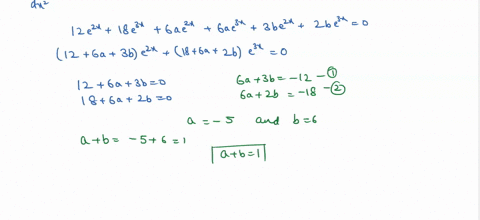 dx²
12e^{2x} + 18e^{3x} + 6ae^{2x} + 6ae^{3x} + 3be^{2x} + 2be^{3x} = 0
(12 + 6a + 3b) e^{2x} + (18 + 6a + 2b) e^{3x} = 0
12 + 6a + 3b = 0
6a + 3b = -12 - ①
18 + 6a + 2b = 0
6a + 2b = -18 - ②
a = -5 and b = 6
a + b = -5 + 6 = 1
a + b = 1